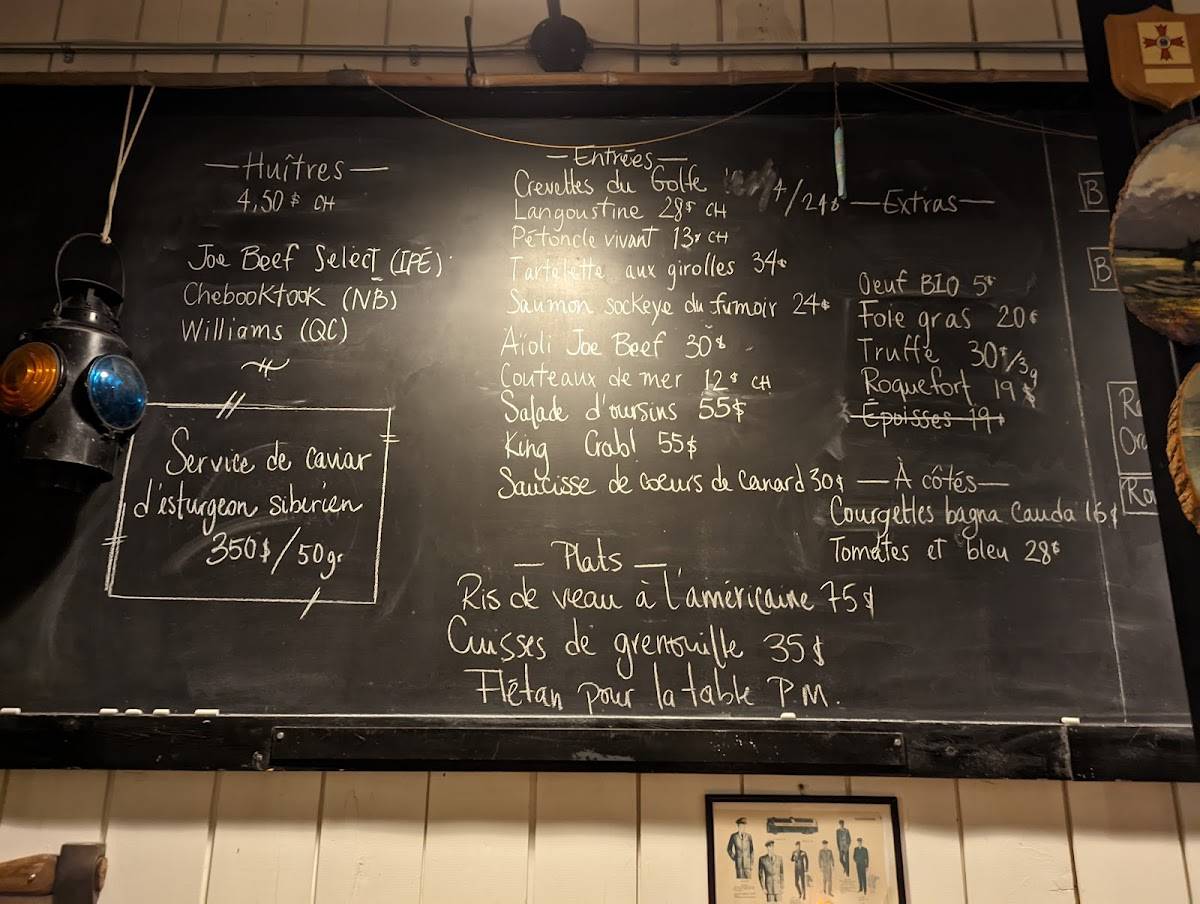 —Huîtres—
4,50$ CH
Joe Beef Select (IPÉ)
Chebooktook (NB)
Williams (QC)
Service de caviar
d'esturgeon sibérien
350$/50gr
—Entrées—
Crevettes du Golfe 4/24$
Langoustine 28$ CH
Pétoncle vivant 13$ CH
Tartelette aux girolles 34$
Saumon sockeye du fumoir 24$
Aïoli Joe Beef 30$
Couteaux de mer 12$ CH
Salade d'oursins 55$
King Crab! 55$
Saucisse de coeurs de canard 30$
— Plats —
Ris de veau à l'américaine 75$
Cuisses de grenouille 35$
Flétan pour la table P.M.
—Extras—
Oeuf BIO 5$
Foie gras 20$
Truffe 30$/3g
Roquefort 19$
Époisses 19$
—À côtés—
Courgettes bagna cauda 16$
Tomates et bleu 28$
B
B